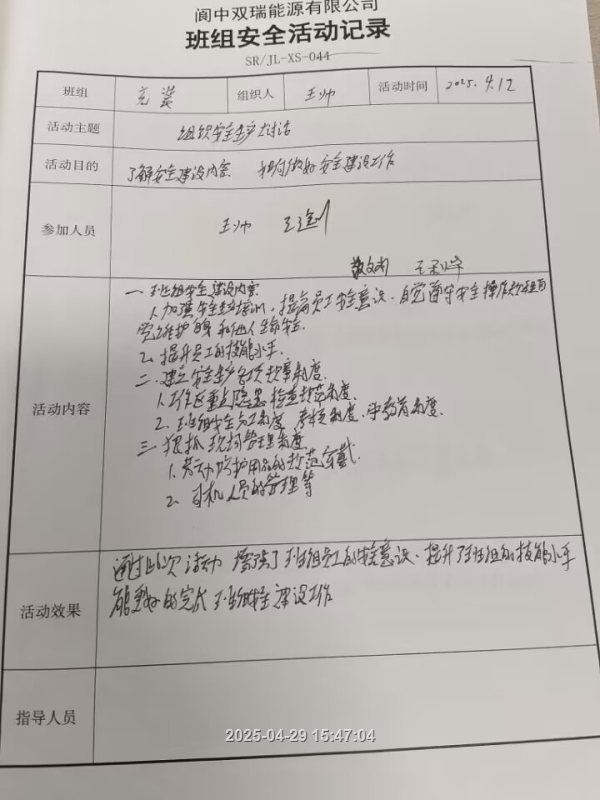 阆中双瑞能源有限公司
班组安全活动记录
SR/JL-XS-044
班组 充装 组织人 王帅 活动时间 2025.4.12
活动主题 组织安全生产大讨论
活动目的 了解安全建设内容 如何做好安全建设工作
参加人员 王帅
活动内容
一、班组安全建设内容
1、加强安全培训,提高员工安全意识,自觉遵守安全操作规程自
觉维护自身和他人生命安全.
2、提升员工的技能水平.
二、建立安全生产各项规章制度.
1、工作区重点隐患检查规范制度.
2、班组安全员工制度、考核制度、教育制度.
三、狠抓现场管理制度
1、劳动防护用品的规范穿戴.
2、司机人员的管理等
活动效果
通过此次活动 增强了班组员工的安全意识、提升了班组的技能水平
能更好的完成班组安全建设工作
指导人员
2025-04-29 15:47:04